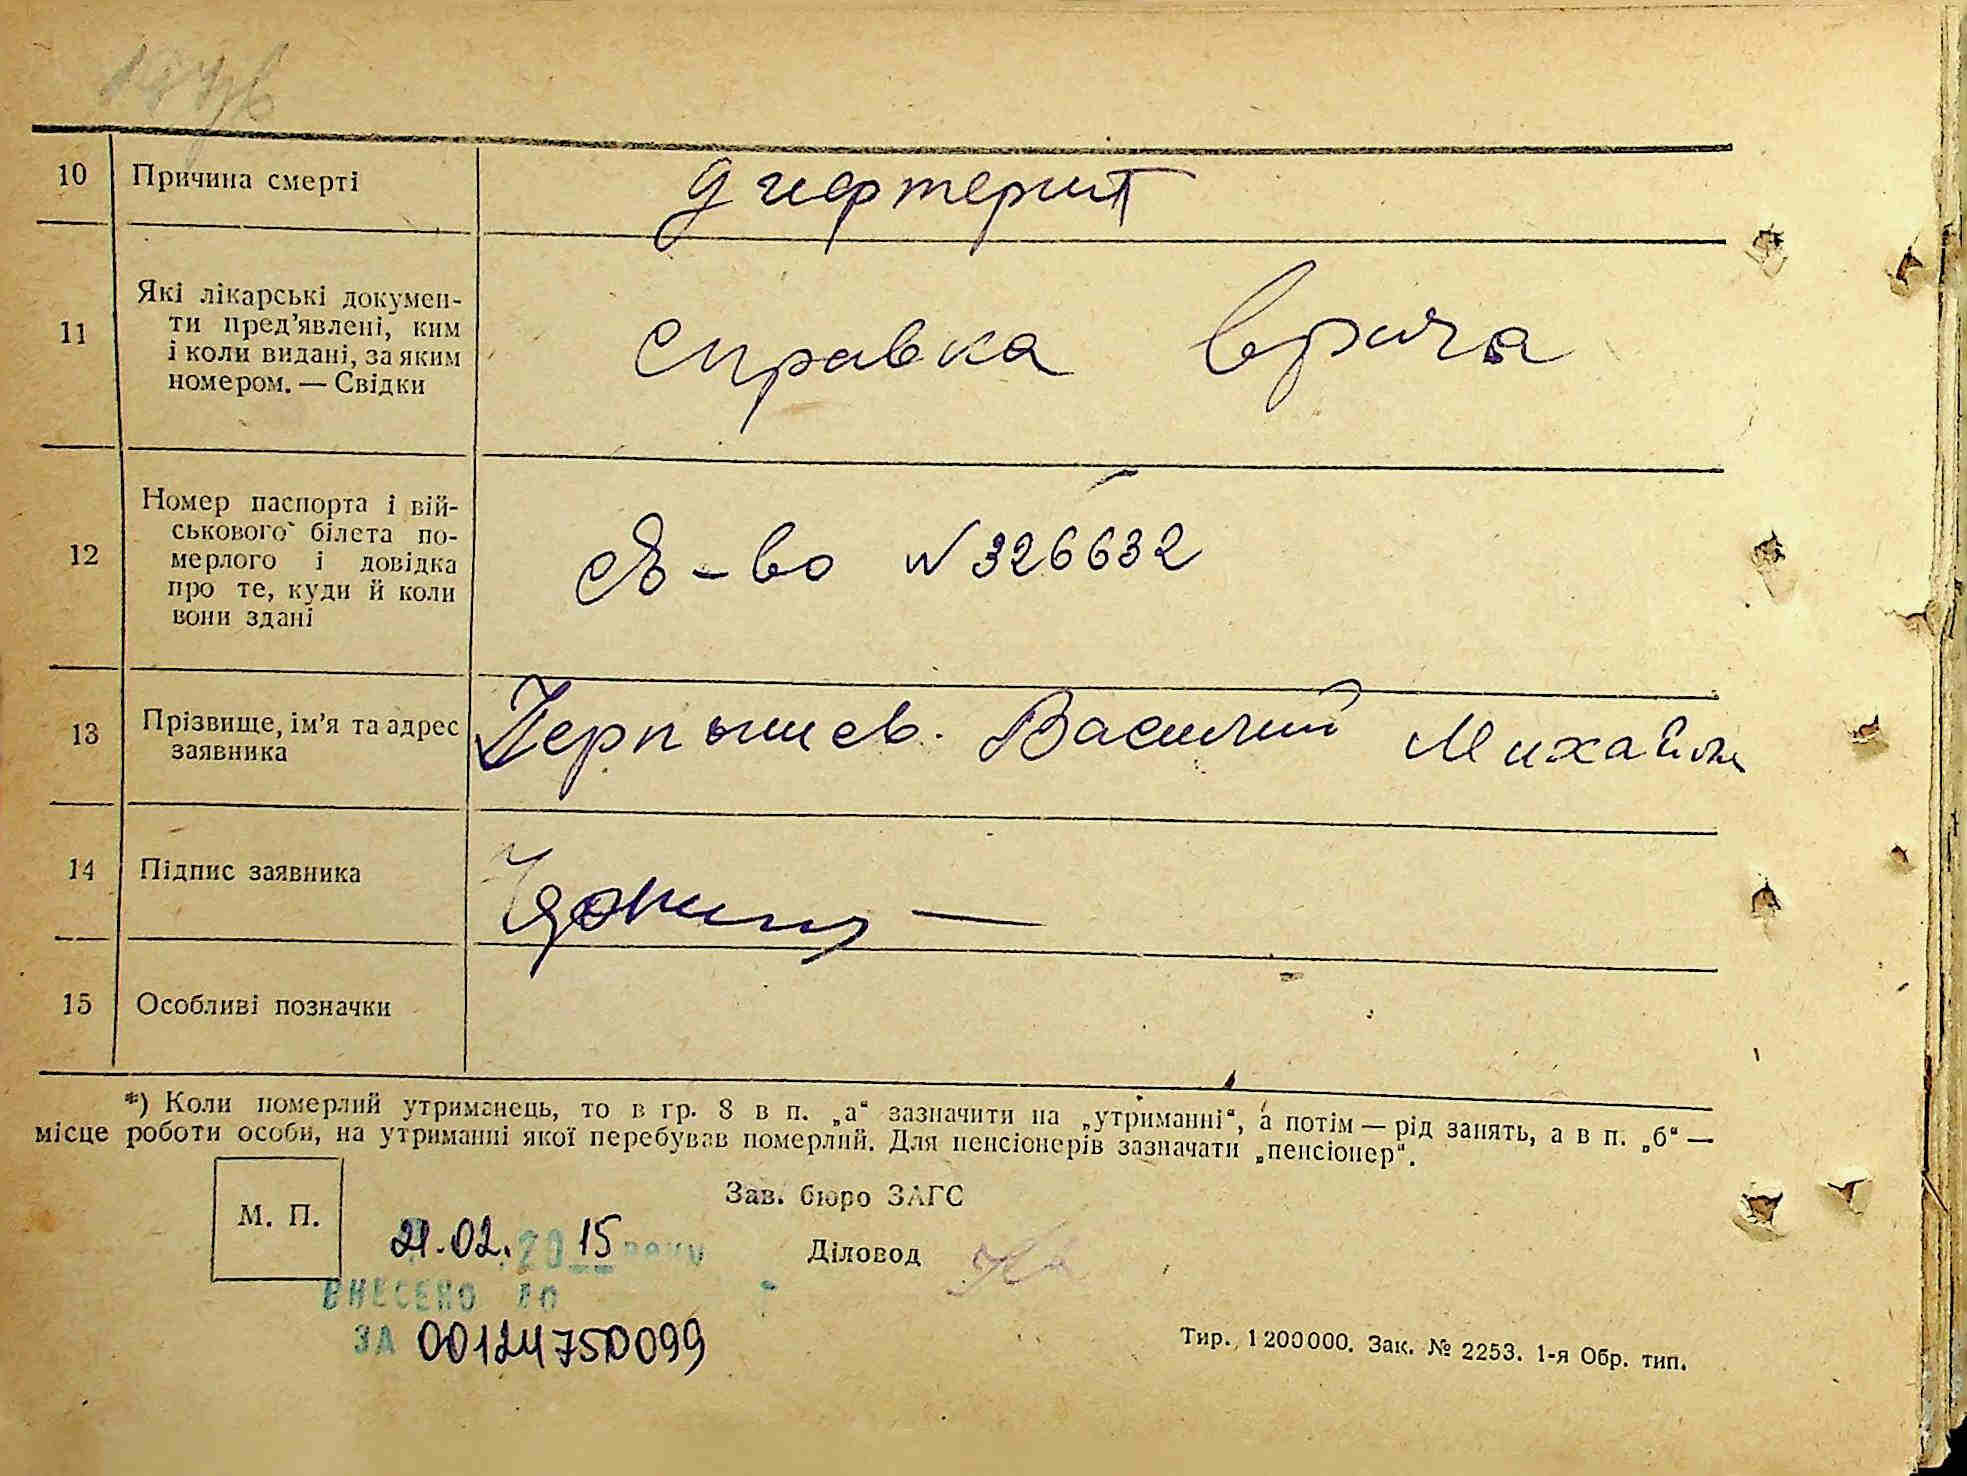 10 Причина смерті дифтерит
11 Які лікарські докумен-
ти пред’явлені, ким
і коли видані, за яким
номером. — Свідки
справка врача
12 Номер паспорта і вій-
ськового білета по-
мерлого і довідка
про те, куди й коли
вони здані
св-во N 326632
13 Прізвище, ім’я та адрес
заявника
Василий Михайл
14 Підпис заявника
15 Особливі позначки
*) Коли померлий утриманець, то в гр. 8 в п. „а“ зазначити на „утриманні“, а потім — рід занять, а в п. „б“ —
місце роботи особи, на утриманні якої перебував померлий. Для пенсіонерів зазначати „пенсіонер“.
Зав. бюро ЗАГС
М. П.
21.02.2015 року
Діловод
ВНЕСЕНО ДО
ЗА 00124750099
Тир. 1 200000. Зак. № 2253. 1-я Обр. тип.